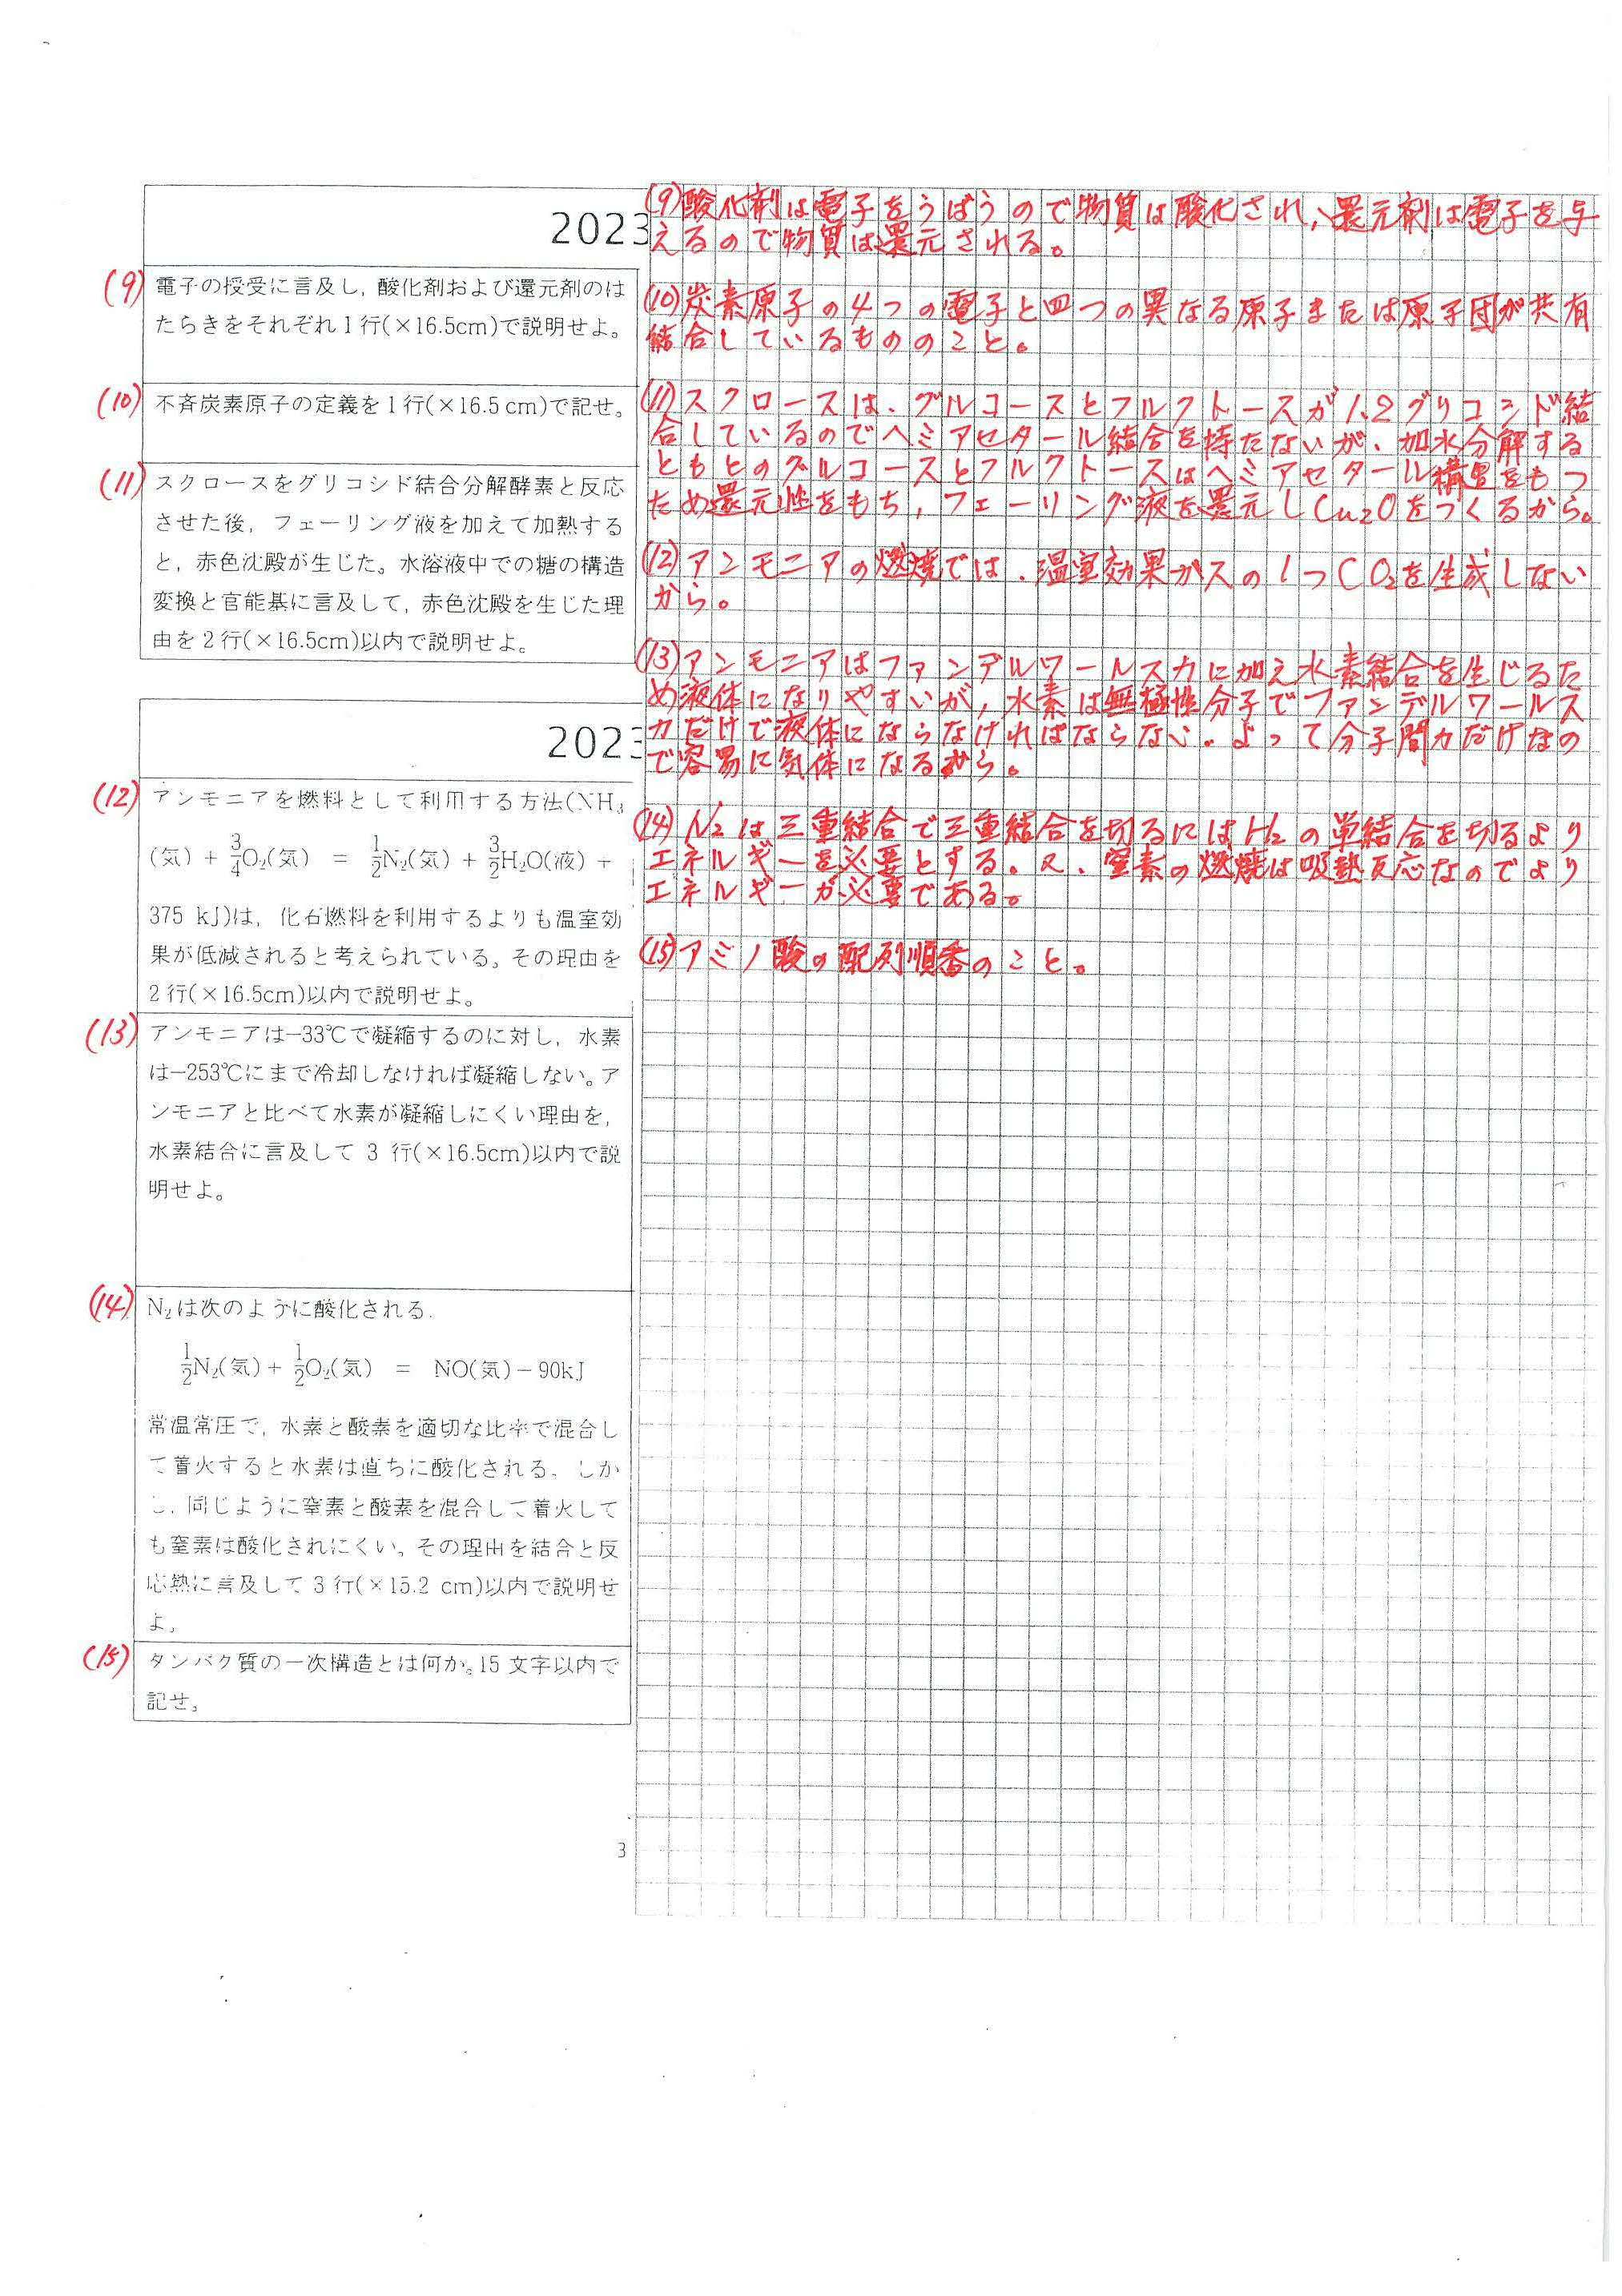 2023
(9) 電子の授受に言及し，酸化剤および還元剤のは
たらきをそれぞれ1行(×16.5cm)で説明せよ。
(10) 不斉炭素原子の定義を1行(×16.5 cm)で記せ。
(11) スクロースをグリコシド結合分解酵素と反応
させた後，フェーリング液を加えて加熱する
と，赤色沈殿が生じた。水溶液中での糖の構造
変換と官能基に言及して，赤色沈殿を生じた理
由を2行(×16.5cm)以内で説明せよ。
2023
(12) アンモニアを燃料として利用する方法(NH₃
(気) + 3/4O₂(気) = 1/2N₂(気) + 3/2H₂O(液) +
375 kJ)は，化石燃料を利用するよりも温室効
果が低減されると考えられている。その理由を
2行(×16.5cm)以内で説明せよ。
(13) アンモニアは−33℃で凝縮するのに対し，水素
は−253℃にまで冷却しなければ凝縮しない。ア
ンモニアと比べて水素が凝縮しにくい理由を，
水素結合に言及して 3 行(×16.5cm)以内で説
明せよ。
(14) N₂は次のように酸化される．
1/2N₂(気) + 1/2O₂(気) = NO(気)−90kJ
常温常圧で，水素と酸素を適切な比率で混合し
て着火すると水素は直ちに酸化される。しか
し，同じように窒素と酸素を混合して着火して
も窒素は酸化されにくい。その理由を結合と反
応熱に言及して 3 行(×15.2 cm)以内で説明せ
よ。
(15) タンパク質の一次構造とは何か。15 文字以内で
記せ。
3
(9)酸化剤は電子をうばうので物質は酸化され、還元剤は電子を与
えるので物質は還元される。
(10)炭素原子の4つの電子と四つの異なる原子または原子団が共有
結合しているもののこと。
(11)スクロースは、グルコースとフルクトースが1,2グリコシド結
合しているのでヘミアセタール結合を持たないが、加水分解する
ともとのグルコースとフルクトースはヘミアセタール構造をもつ
ため還元性をもち，フェーリング液を還元しCu₂Oをつくるから。
(12)アンモニアの燃焼では、温室効果ガスの1つCO₂を生成しない
から。
(13)アンモニアはファンデルワールス力に加え水素結合を生じるた
め液体になりやすいが，水素は無極性分子でファンデルワールス
力だけで液体にならなければならない。よって分子間力だけなの
で容易に気体になるから。
(14) N₂は三重結合で三重結合を切るにはH₂の単結合を切るより
エネルギーを必要とする。又、窒素の燃焼は吸熱反応なのでより
エネルギーが必要である。
(15)アミノ酸の配列順番のこと。